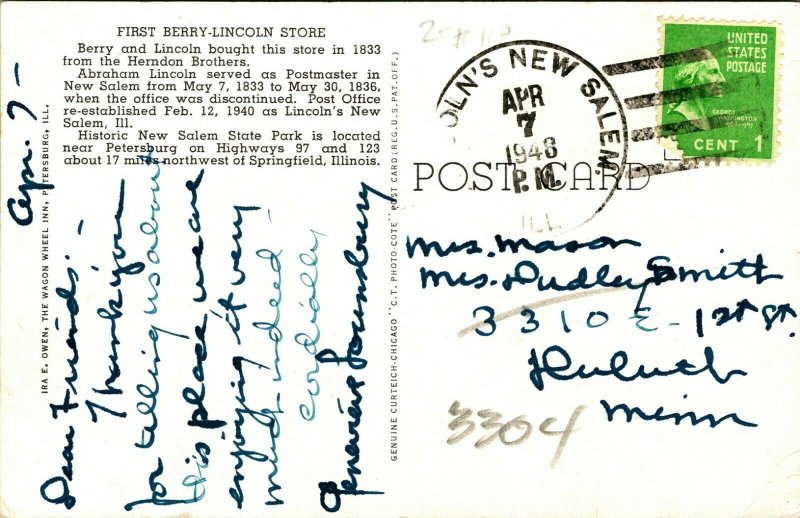 FIRST BERRY-LINCOLN STORE
Berry and Lincoln bought this store in 1833
from the Herndon Brothers.
Abraham Lincoln served as Postmaster in
New Salem from May 7, 1833 to May 30, 1836,
when the office was discontinued. Post Office
re-established Feb. 12, 1940 as Lincoln's New
Salem, Ill.
Historic New Salem State Park is located
near Petersburg on Highways 97 and 123
about 17 miles northwest of Springfield, Illinois.
IRA E. OWEN, THE WAGON WHEEL INN, PETERSBURG, ILL.
Apr. 7 -
Dear Friends: -
Thank you
for telling us about
this place we are
enjoying it very
much indeed -
Cordially
Genevieve Lounsbury
GENUINE CURTEICH-CHICAGO "C.T. PHOTO-COTE" POST CARD (REG. U.S. PAT. OFF.)
OLN'S NEW SALEM.
APR
7
1948
P.M.
ILL
UNITED
STATES
POSTAGE
GEORGE
WASHINGTON
CENT 1
POST CARD
Mrs. Mason
Mrs. Dudley Smith
3310 E - 1st St.
Duluth
Minn
3304